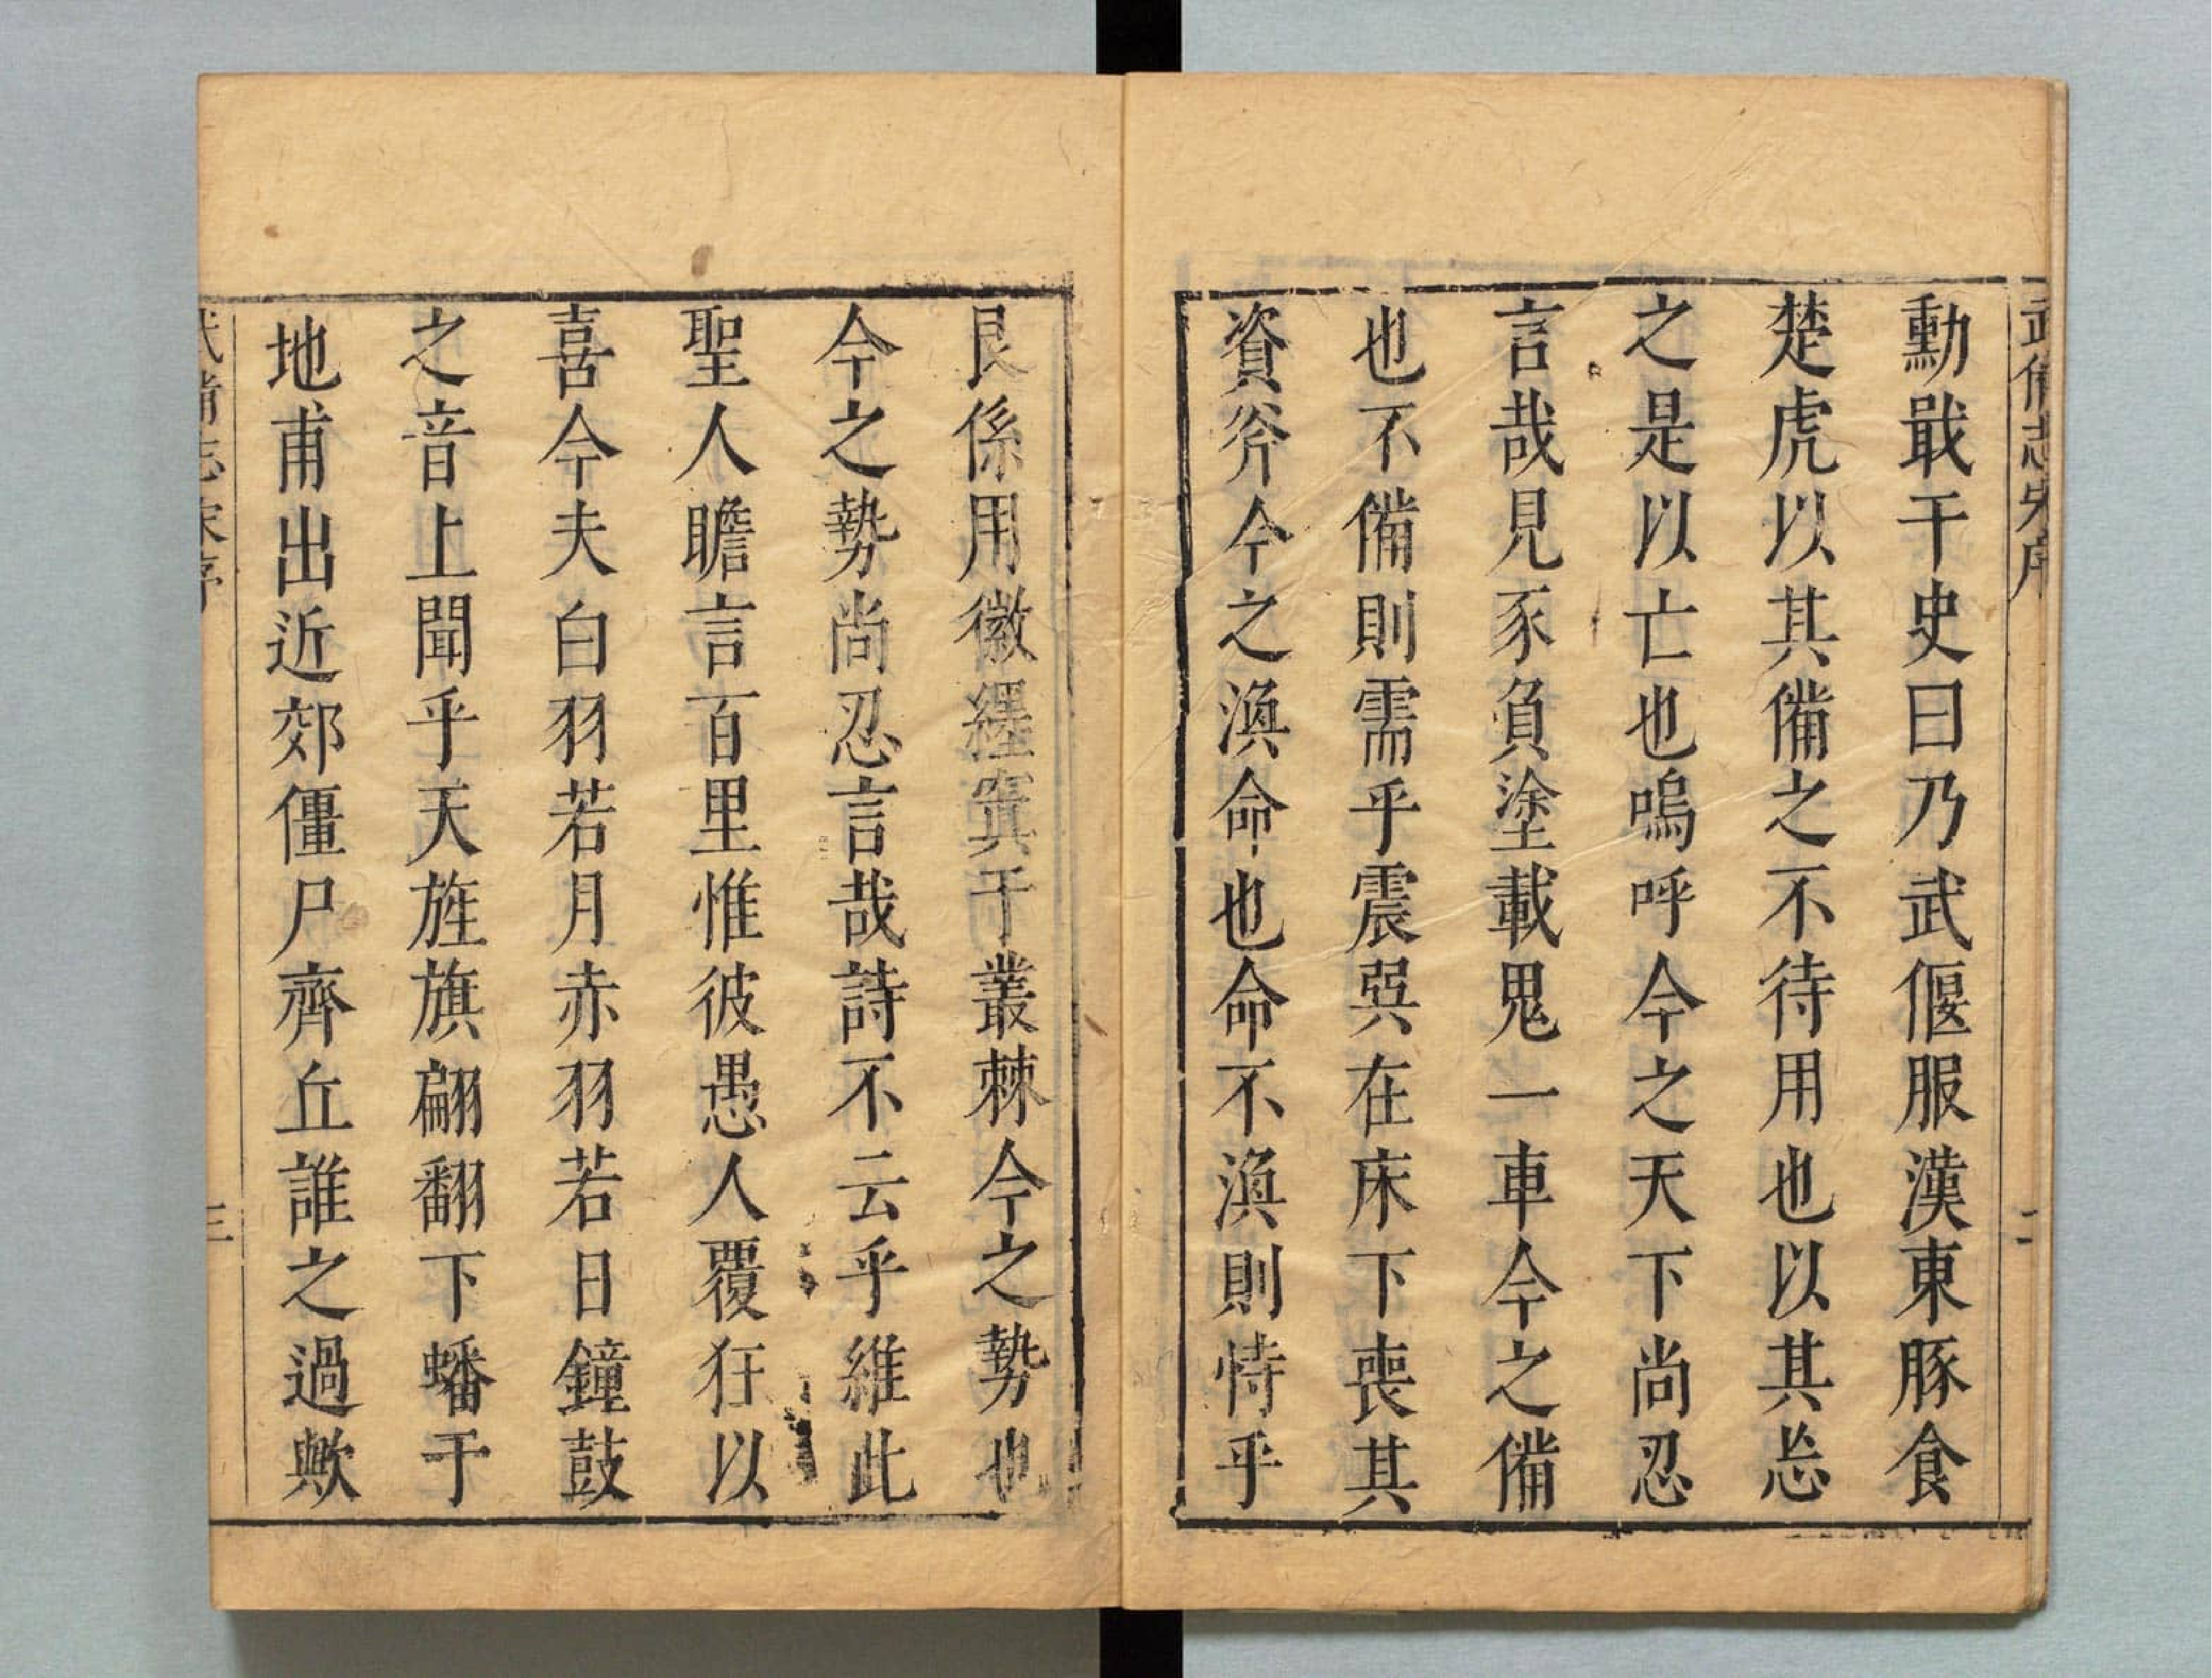 武備志宋序
二
勳戢干史曰乃武偃服漢東豚食
楚虎以其備之不待用也以其忘
之是以亡也嗚呼今之天下尚忍
言哉見豕負塗載鬼一車今之備
也不備則需乎震巽在床下喪其
資斧今之渙命也命不渙則恃乎
艮係用徽纆寘于叢棘今之勢也
今之勢尚忍言哉詩不云乎維此
聖人瞻言百里惟彼愚人覆狂以
喜今夫白羽若月赤羽若日鐘鼓
之音上聞乎天旌旗翩翻下蟠于
地甫出近郊僵尸齊丘誰之過歟
武備志宋序
三